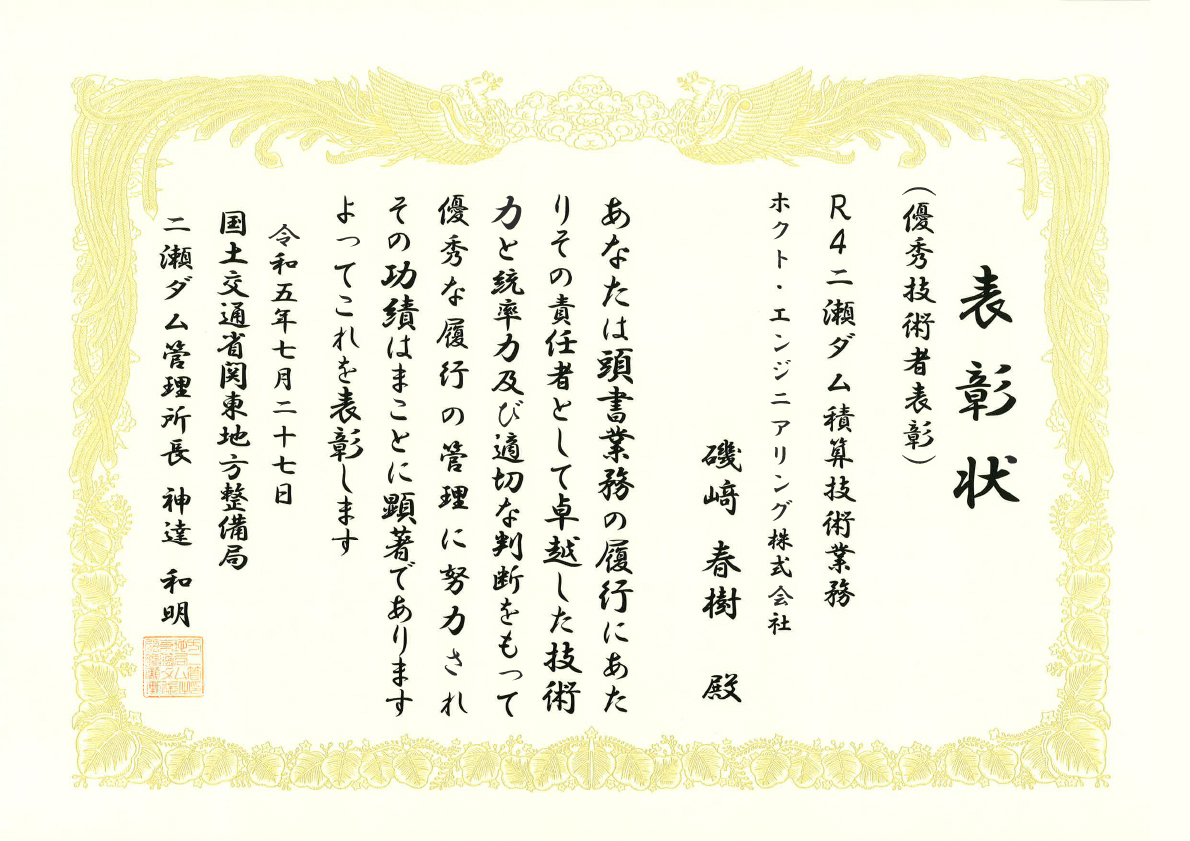 表彰状
(優秀技術者表彰)
R4二瀬ダム積算技術業務
ホクト・エンジニアリング株式会社
磯﨑 春樹 殿
あなたは頭書業務の履行にあた
りその責任者として卓越した技術
力と統率力及び適切な判断をもって
優秀な履行の管理に努力され
その功績はまことに顕著であります
よってこれを表彰します
令和五年七月二十七日
国土交通省関東地方整備局
二瀬ダム管理所長 神達 和明